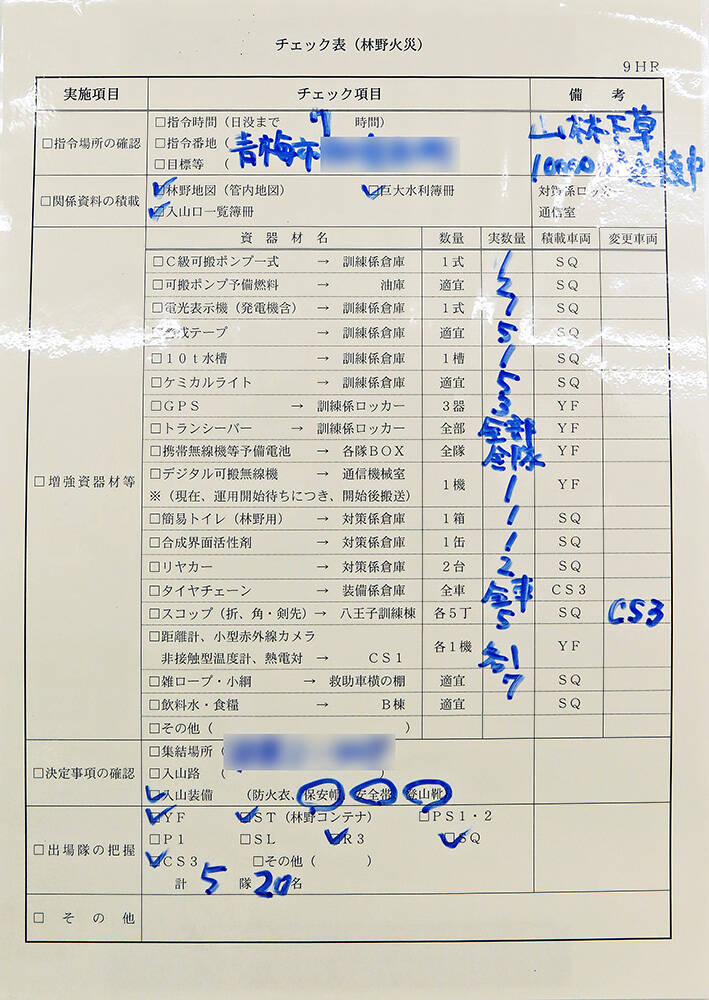 チェック表（林野火災）
９ＨＲ
実施項目 チェック項目 備 考
□指令場所の確認 □指令時間（日没まで 7 時間） 山林下草
□指令番地（青梅市
□目標等 （
□関係資料の積載 □林野地図（管内地図） □巨大水利簿冊 対策係ロッカー
□入山口一覧簿冊 通信室
□増強資器材等 資 器 材 名 数量 実数量 積載車両 変更車両
□Ｃ級可搬ポンプ一式 → 訓練係倉庫 １式 1 ＳＱ
□可搬ポンプ予備燃料 → 油庫 適宜 2 ＳＱ
□電光表示機（発電機含） → 訓練係倉庫 １式 ＳＱ
テープ → 訓練係倉庫 適宜 5 ＳＱ
□１０ｔ水槽 → 訓練係倉庫 １槽 1 ＳＱ
□ケミカルライト → 訓練係倉庫 適宜 5 ＳＱ
□ＧＰＳ → 訓練係ロッカー ３器 3 ＹＦ
□トランシーバー → 訓練係ロッカー 全部 全部 ＹＦ
□携帯無線機等予備電池 → 各隊ＢＯＸ 全隊 全隊 ＹＦ
□デジタル可搬無線機 → 通信機械室 １機 1 ＹＦ
※（現在、運用開始待ちにつき、開始後搬送）
□簡易トイレ（林野用） → 対策係倉庫 １箱 1 ＳＱ
□合成界面活性剤 → 対策係倉庫 １缶 1 ＳＱ
□リヤカー → 対策係倉庫 ２台 2 ＳＱ
□タイヤチェーン → 装備係倉庫 全車 全車 ＣＳ３
□スコップ（折、角・剣先）→ 八王子訓練棟 各５丁 5 ＳＱ CS3
□距離計、小型赤外線カメラ 各１機 各1 ＹＦ
非接触型温度計、熱電対 → ＣＳ１
□雑ロープ・小綱 → 救助車横の棚 適宜 7 ＳＱ
□飲料水・食糧 → Ｂ棟 適宜 ＳＱ
□その他（ ）
□決定事項の確認 □集結場所（
□入山路 （ ）
□入山装備 （防火衣、保安帽、安全帯、登山靴）
□出場隊の把握 □ＹＦ □ＳＴ（林野コンテナ） □ＰＳ１・２
□Ｐ１ □ＳＬ □Ｒ３ □ＳＱ
□ＣＳ３ □その他（ ）
計 5 隊 20 名
□ そ の 他